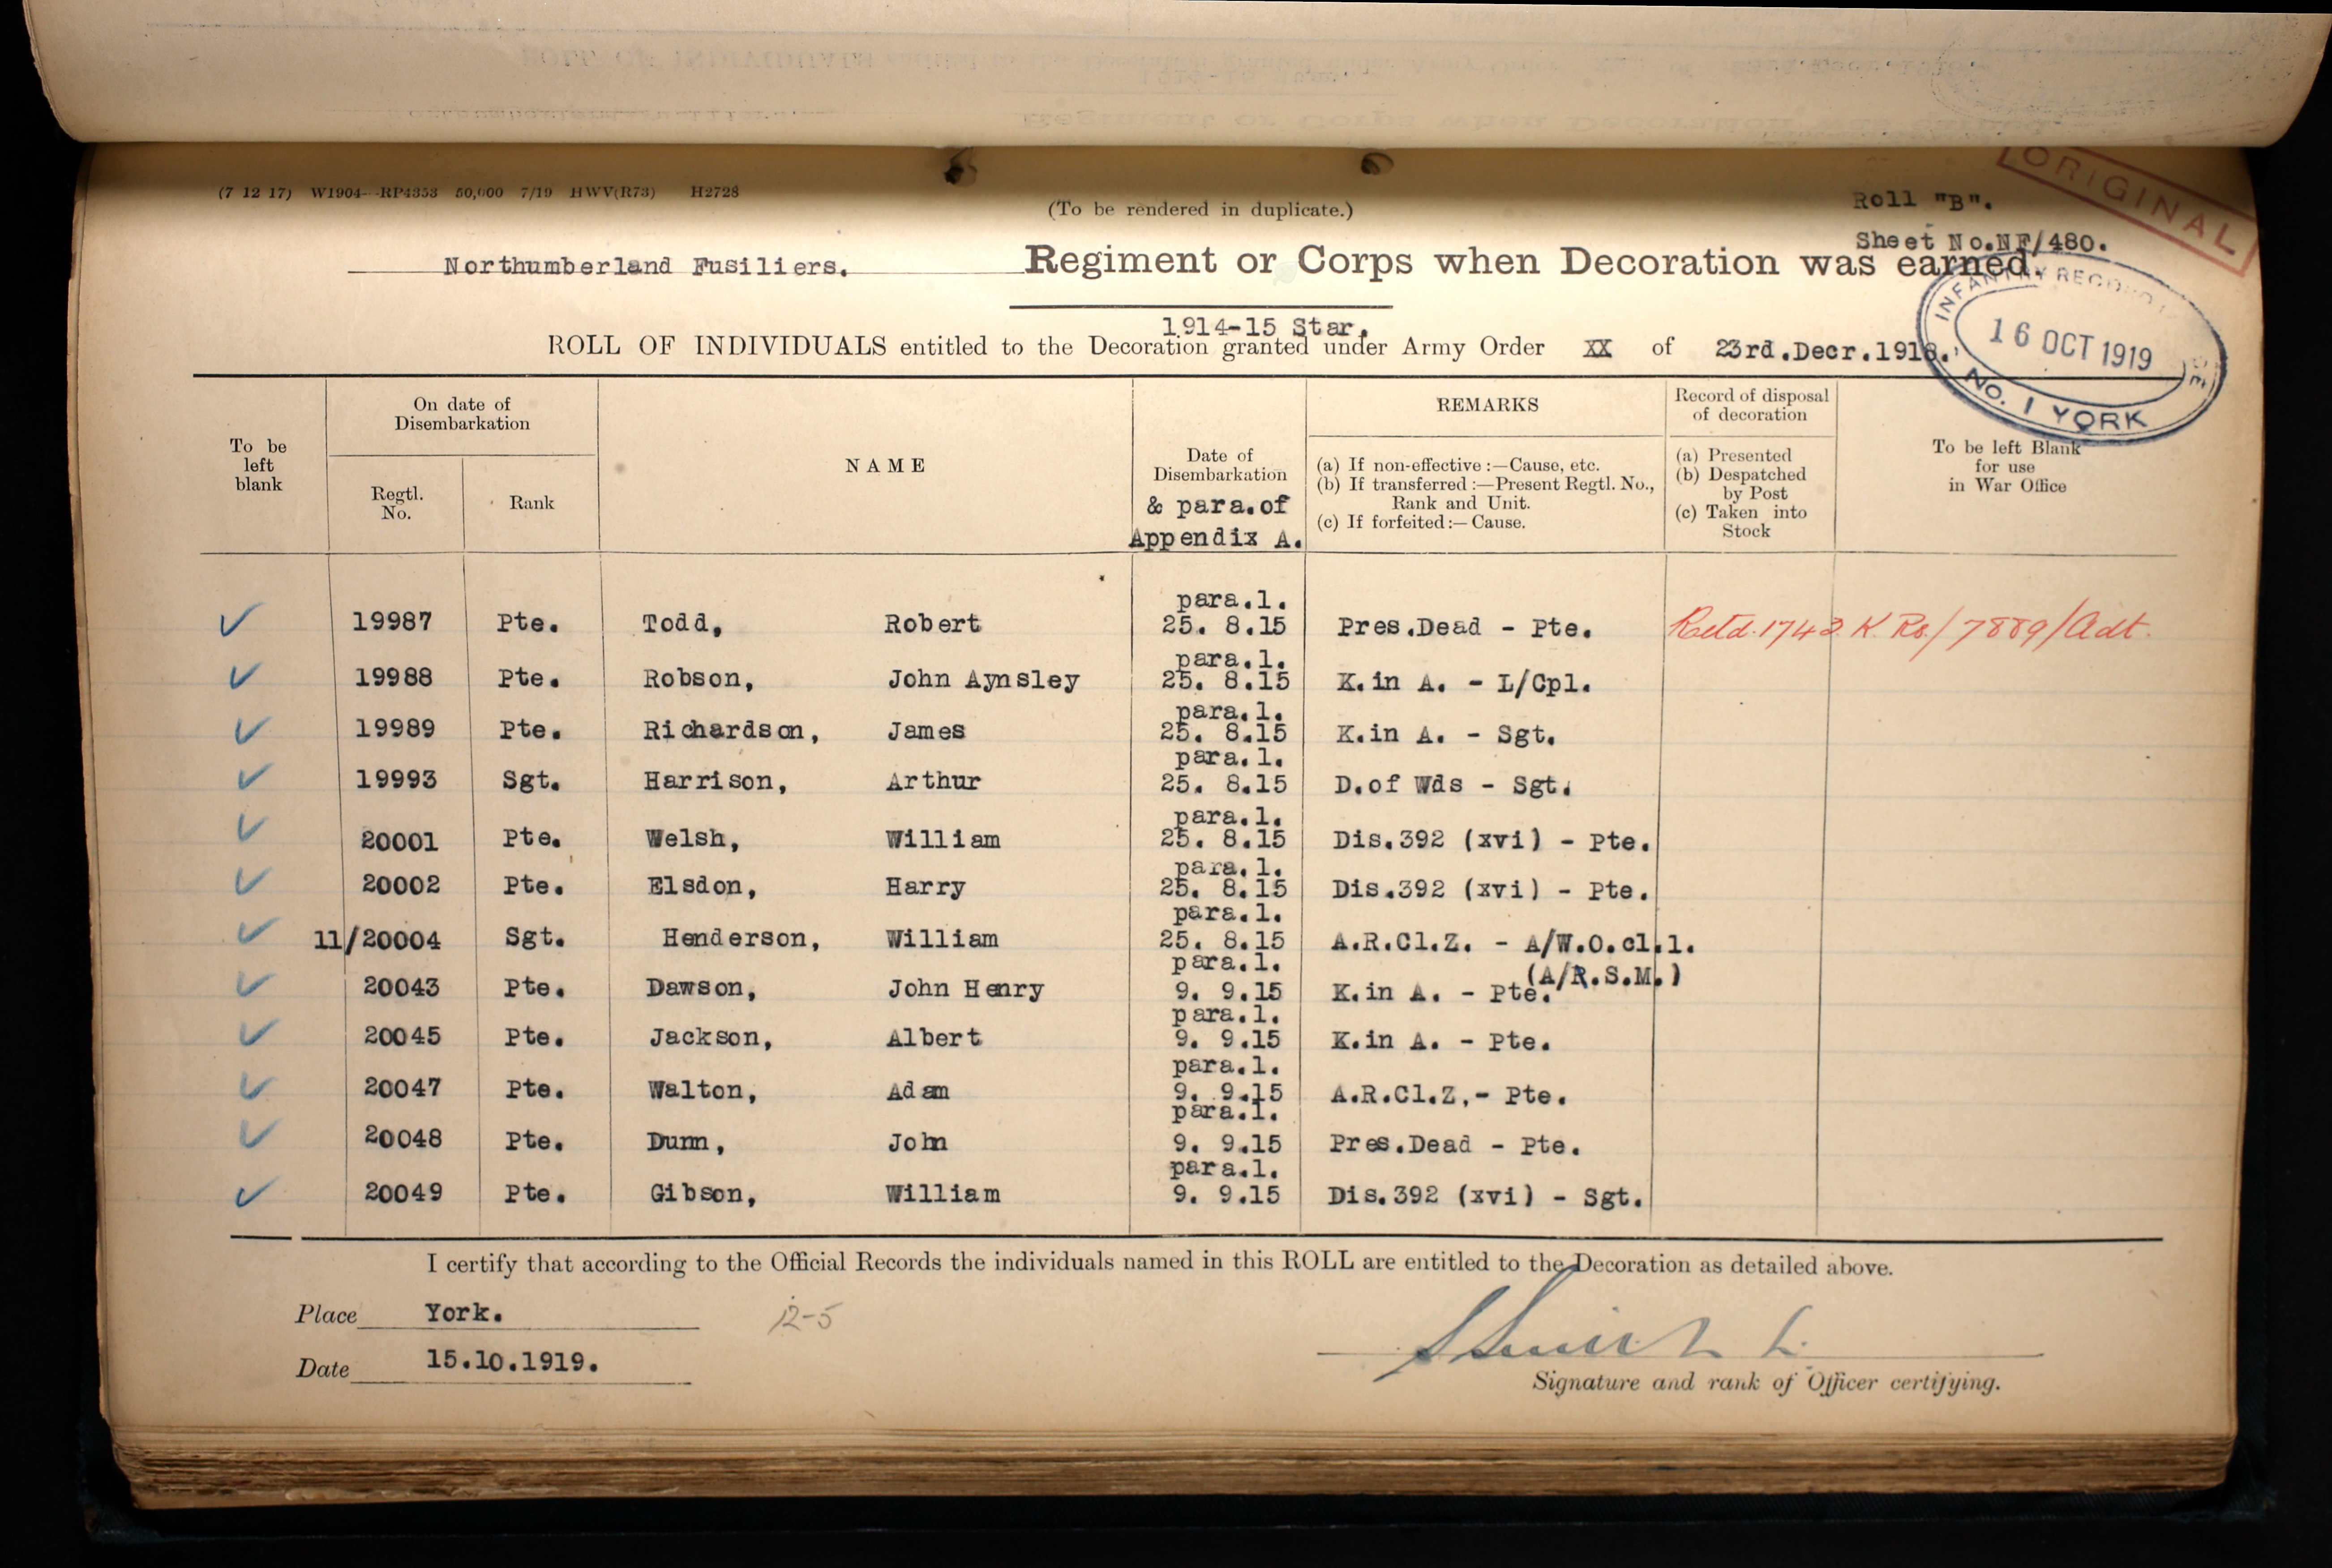 (7 12 17) W1904—RP4353 50,000 7/19 HWV(R73) H2728
(To be rendered in duplicate.)
Roll "B".
ORIGINAL
Sheet No.NF/480.
Northumberland Fusiliers. Regiment or Corps when Decoration was earned.
INFANTRY RECORD
16 OCT 1919
NO. 1 YORK
1914-15 Star.
ROLL OF INDIVIDUALS entitled to the Decoration granted under Army Order XX of 23rd.Decr.1918.
To be left blank
On date of Disembarkation
Regtl. No.
Rank
NAME
Date of Disembarkation
& para.of
Appendix A.
REMARKS
(a) If non-effective :—Cause, etc.
(b) If transferred :—Present Regtl. No.,
Rank and Unit.
(c) If forfeited :— Cause.
Record of disposal
of decoration
(a) Presented
(b) Despatched
by Post
(c) Taken into
Stock
To be left Blank
for use
in War Office
para.1.
19987 Pte. Todd, Robert 25. 8.15 Pres.Dead - Pte. 7889/Adt.
para.1.
19988 Pte. Robson, John Aynsley 25. 8.15 K.in A. - L/Cpl.
para.1.
19989 Pte. Richardson, James 25. 8.15 K.in A. - Sgt.
para.1.
19993 Sgt. Harrison, Arthur 25. 8.15 D.of Wds - Sgt.
para.1.
20001 Pte. Welsh, William 25. 8.15 Dis.392 (xvi) - Pte.
para.1.
20002 Pte. Elsdon, Harry 25. 8.15 Dis.392 (xvi) - Pte.
para.1.
11/20004 Sgt. Henderson, William 25. 8.15 A.R.Cl.Z. - A/W.O.cl.1.
para.1. (A/R.S.M.)
20043 Pte. Dawson, John Henry 9. 9.15 K.in A. - Pte.
para.1.
20045 Pte. Jackson, Albert 9. 9.15 K.in A. - Pte.
para.1.
20047 Pte. Walton, Adam 9. 9.15 A.R.Cl.Z,- Pte.
para.1.
20048 Pte. Dunn, John 9. 9.15 Pres.Dead - Pte.
para.1.
20049 Pte. Gibson, William 9. 9.15 Dis.392 (xvi) - Sgt.
I certify that according to the Official Records the individuals named in this ROLL are entitled to the Decoration as detailed above.
Place York.
12-5
Date 15.10.1919.
Signature and rank of Officer certifying.